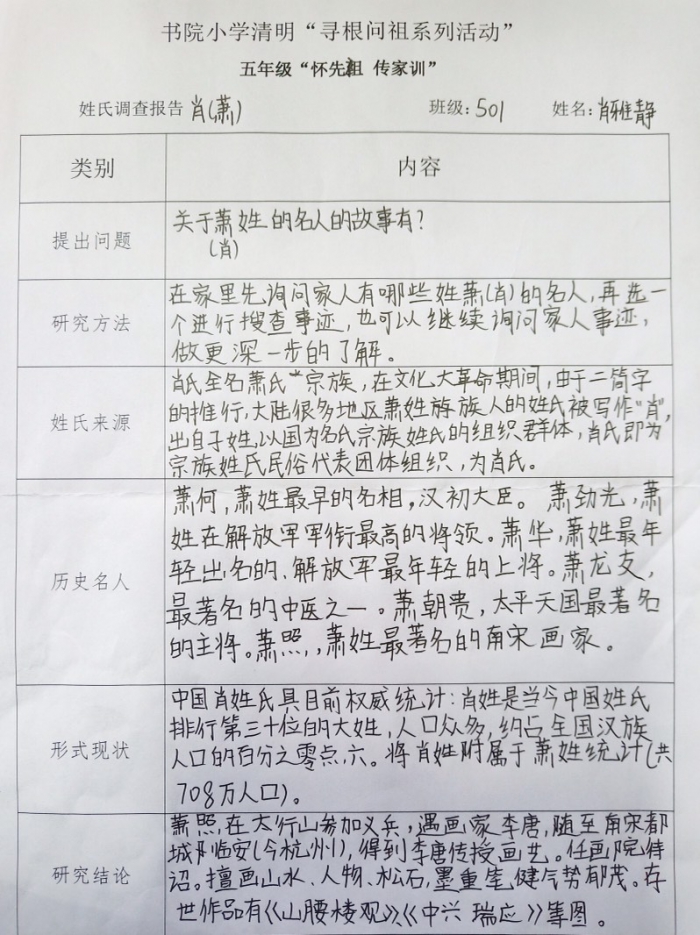 书院小学清明“寻根问祖系列活动”
五年级“怀先祖 传家训”
姓氏调查报告 肖(萧) 班级: 501 姓名: 肖雅静
类别 内容
提出问题
关于萧姓的名人的故事有?
(肖)
研究方法
在家里先询问家人有哪些姓萧(肖)的名人,再选一
个进行搜查事迹,也可以继续询问家人事迹,
做更深一步的了解。
姓氏来源
肖氏全名萧氏宗族,在文化大革命期间,由于二简字
的推行,大陆很多地区萧姓族人的姓氏被写作“肖”,
出自子姓,以国为名氏宗族姓氏的组织群体,肖氏即为
宗族姓氏民俗代表团体组织,为肖氏。
历史名人
萧何,萧姓最早的名相,汉初大臣。萧劲光,萧
姓在解放军军衔最高的将领。萧华,萧姓最年
轻出名的、解放军最年轻的上将。萧龙友,
最著名的中医之一。萧朝贵,太平天国最著名
的主将。萧照,萧姓最著名的南宋画家。
形式现状
中国肖姓氏具目前权威统计:肖姓是当今中国姓氏
排行第三十位的大姓,人口众多,约占全国汉族
人口的百分之零点六。将肖姓附属于萧姓统计(共
708万人口)。
研究结论
萧照,在太行山参加义兵,遇画家李唐,随至南宋都
城临安(今杭州),得到李唐传授画艺。任画院待
诏。擅画山水、人物、松石,墨重笔健气势郁茂。存
世作品有《山腰楼观》、《中兴瑞应》等图。